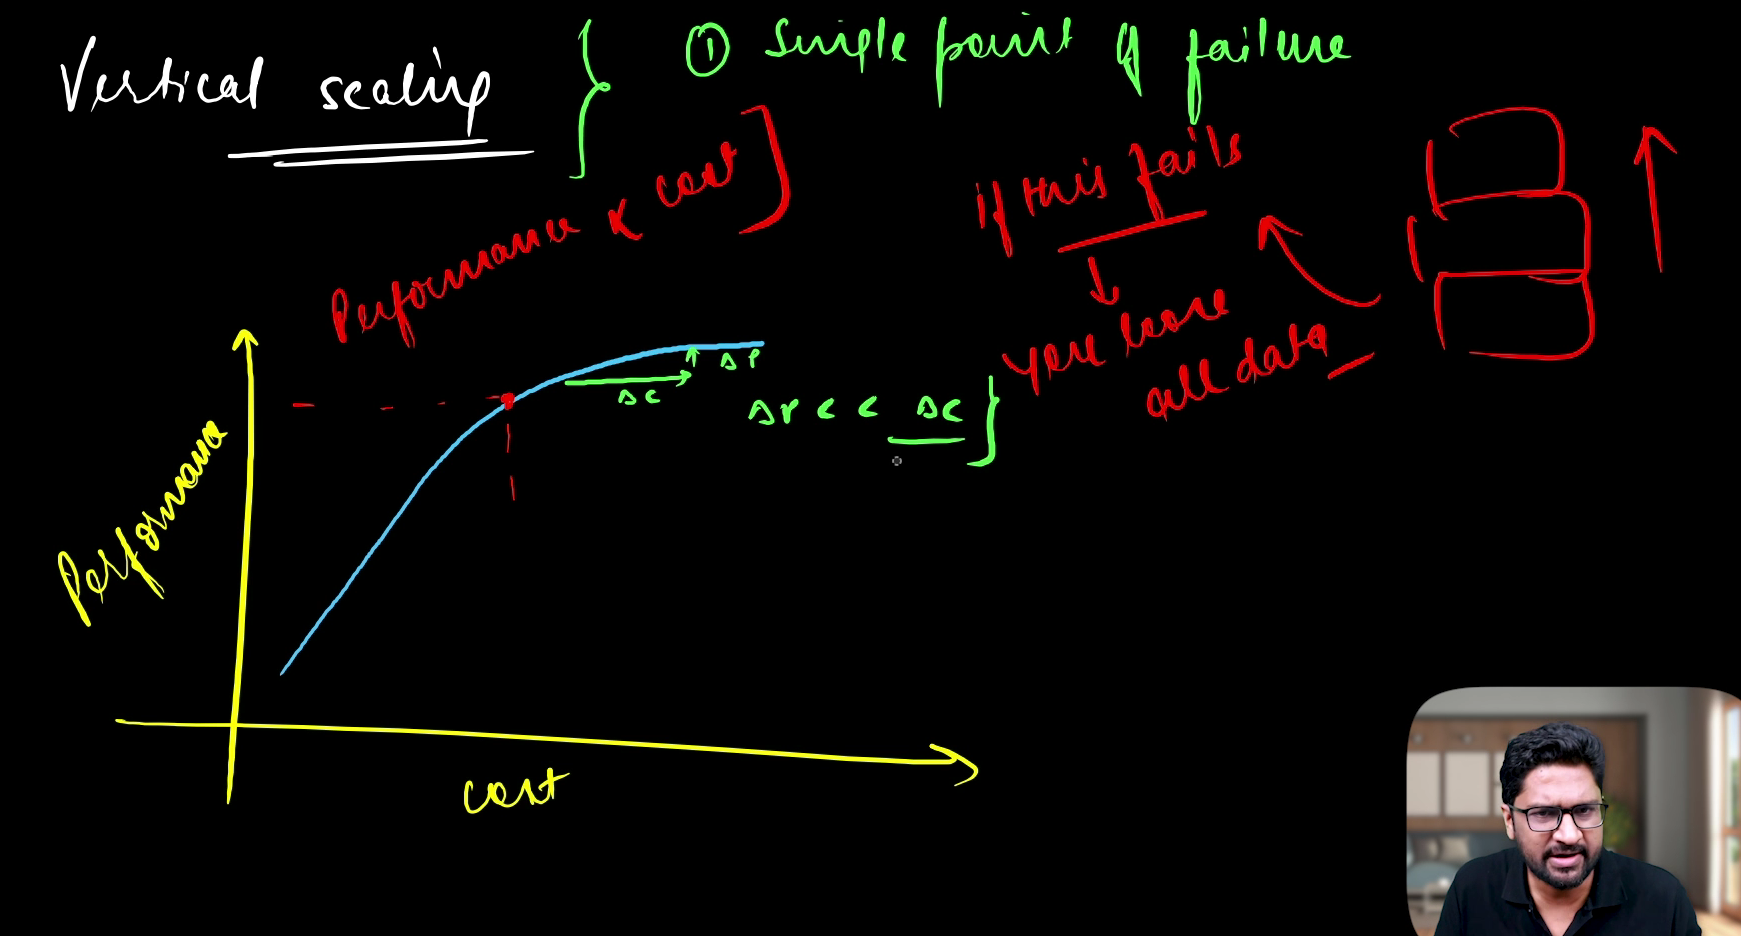 Vertical scaling
① Single point of failure
Performance ∝ cost
if this fails
you loose
all data
ΔP
ΔC
ΔP << ΔC
Performance
cost